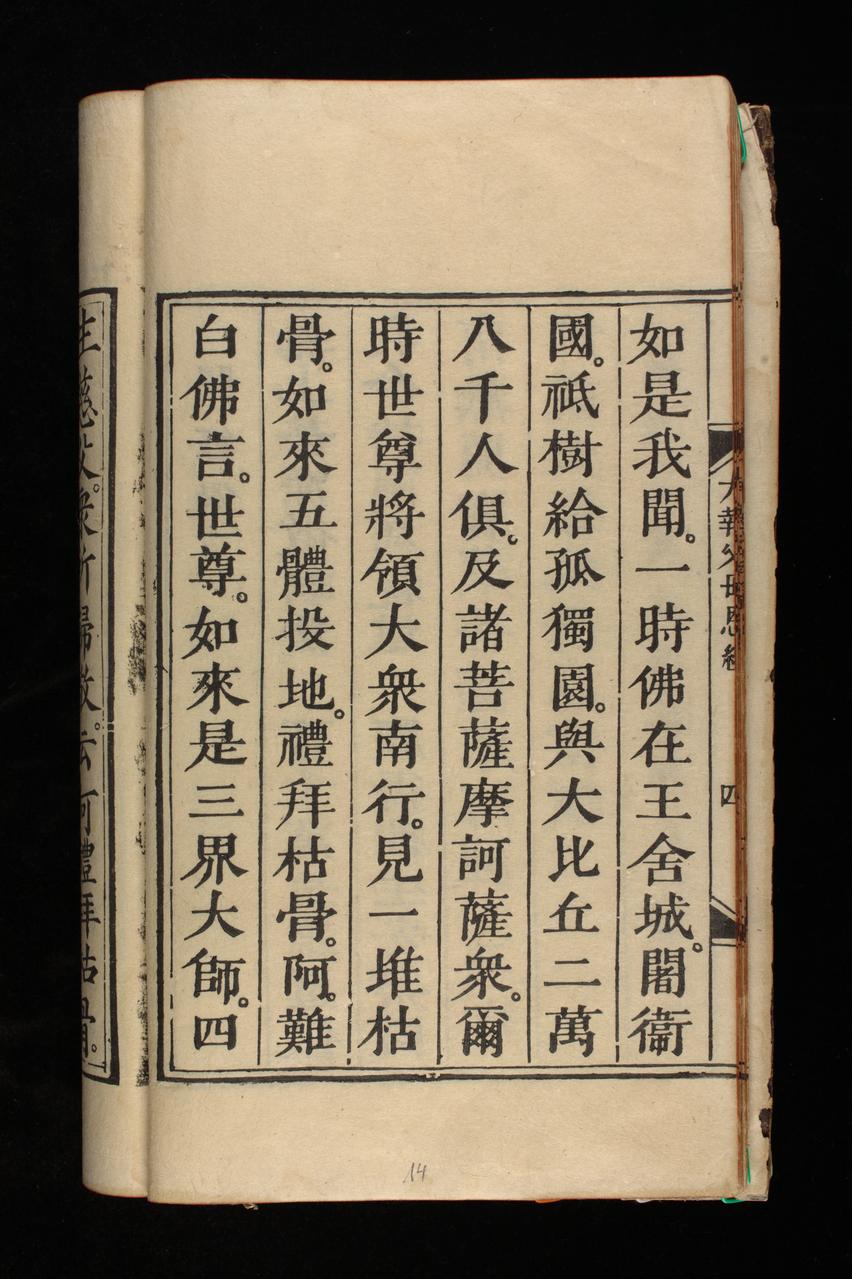 大報父母恩經 四
如是我聞。一時佛在王舍城。闍衞
國。祇樹給孤獨園。與大比丘二萬
八千人俱。及諸菩薩摩訶薩衆。爾
時世尊將領大衆南行。見一堆枯
骨。如來五體投地。禮拜枯骨。阿。難
白佛言。世尊。如來是三界大師。四
生慈父。衆所歸敬。云何禮拜枯骨。
14